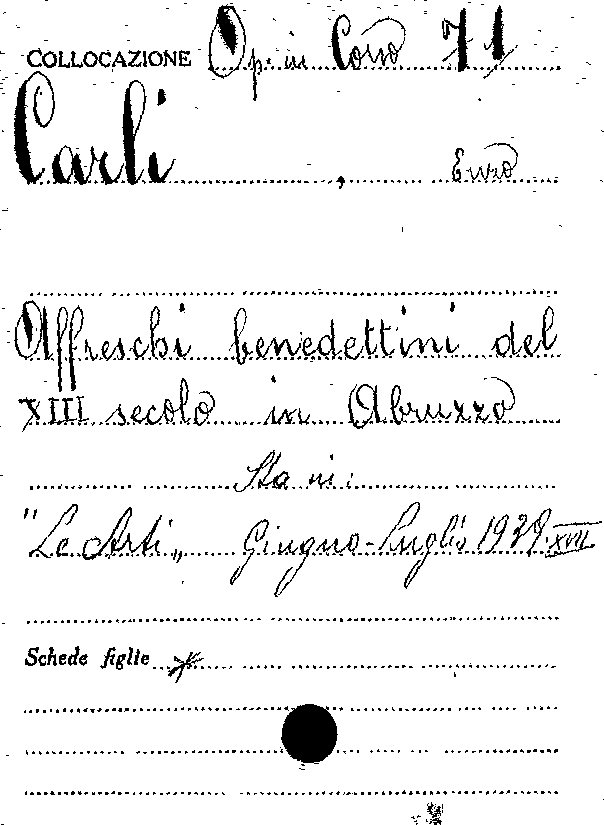 COLLOCAZIONE Op. in Corso 71
Carli, Enzo
Affreschi benedettini del
XIII secolo in Abruzzo
Sta in:
"Le Arti„ Giugno-Luglio 1939. XVII
Schede figlie *